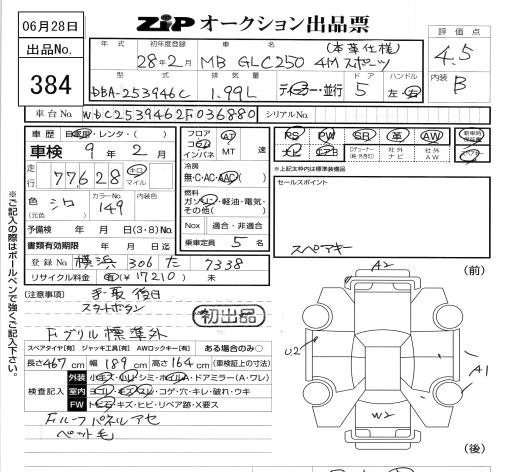 06月28日
ZiP オークション出品票
出品No.
384
年式 初年度登録 車名 (本革仕様)
28年2月 MB GLC250 4Mスポーツ
型式 排気量 ドア ハンドル
DBA-253946C 1.99L ディーラー・並行 5 左・右
評価点
4.5
内装 B
車台No. WDC2539462F036880 シリアルNo.
車歴 自家用・レンタ・( )
車検 9年2月
走行 77628 キロ マイル
色 シロ カラーNo. 149 内装色
(元色)
予備検 年 月 日(3・8)No.
書類有効期限 年 月 日迄
登録No 横浜 306 た 7338
リサイクル料金 有(¥17210) 未
フロア コラム インパネ AT MT 速
冷房
無・C・AC・AAC
燃料
ガソリン・軽油・電気・その他( )
Nox 適合・非適合
乗車定員 5 名
PS PW SR 革 AW 新車時保証書
ナビ エアB Dチューナー(純・外含む) 社外ナビ 社外AW スペアキー
※上記太枠内は標準装備品
セールスポイント
スペアキー
(注意事項) 手・取 後日
スタートボタン
初出品
Fグリル標準外
スペアタイヤ[有] ジャッキ工具[有] AWロックキー[有] ある場合のみ○
長さ467cm 幅189cm 高さ164cm (車検証上の寸法)
検査記入
外装 小キズ・小ヘコ・シミ・ホイルA・ドアミラー(A・ワレ)
室内 ヨゴレ・キズ・スレ・コゲ・穴・キレ・破れ・ウキ
FW トビ石・キズ・ヒビ・リペア跡・X要ス
Fルーフパネルアセ
ペット毛
(前)
A2
U2
A1
W2
(後)
※ご記入の際はボールペンで強くご記入下さい。